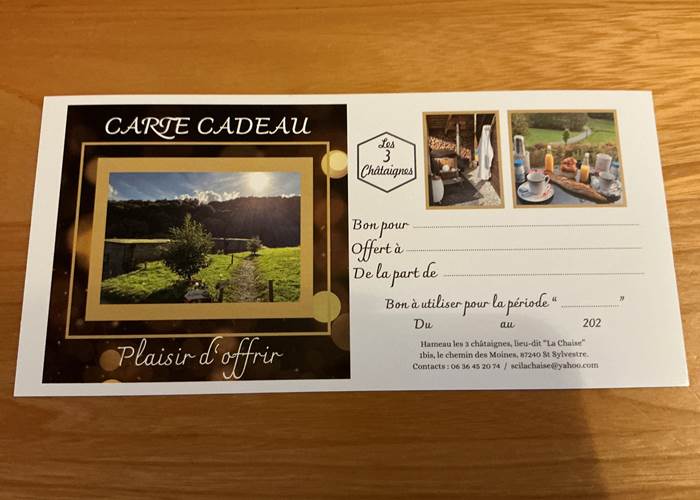 CARTE CADEAU
Plaisir d'offrir
Les
3
Châtaignes
Bon pour
Offert à
De la part de
Bon à utiliser pour la période " "
Du au 202
Hameau les 3 châtaignes, lieu-dit "La Chaise"
1bis, le chemin des Moines, 87240 St Sylvestre.
Contacts : 06 36 45 20 74 / scilachaise@yahoo.com